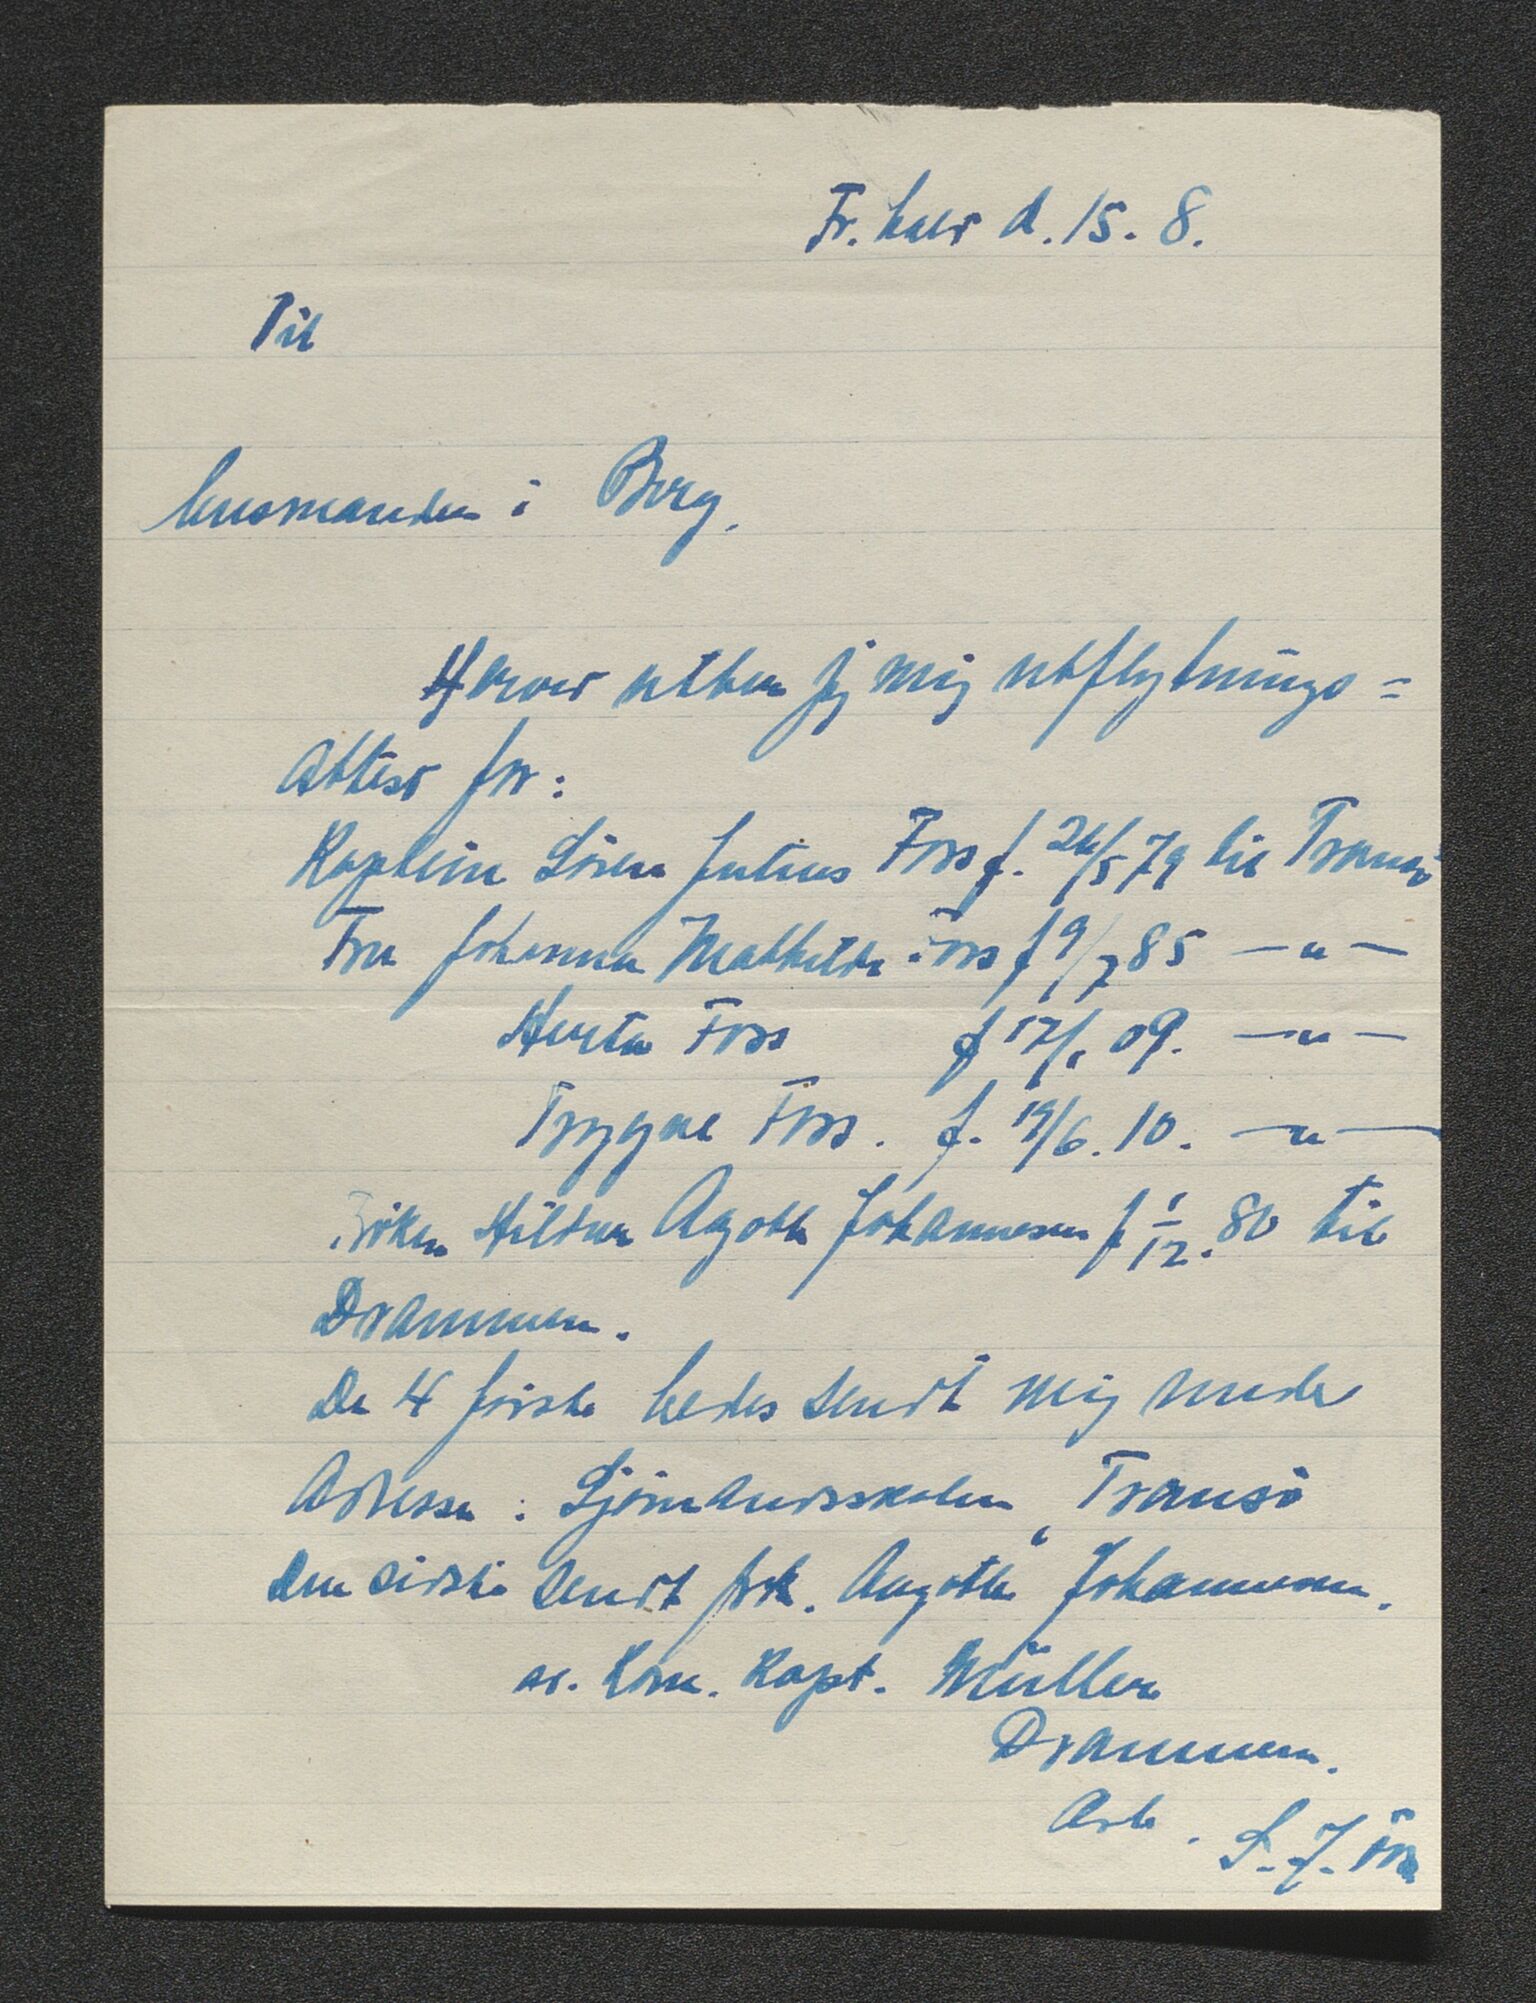 Fr.hald d. 15. 8.
Til
lensmanden i Berg.
Herved utber jeg mig utflytnings=
Attest for:
Kaptein Sören Julius Foss f. 26/5 79 til Tromsö
Fru Johanna Mathilde Foss f 9/7 85 —"—
Herta Foss f 17/1 09. —"—
Trygve Foss. f. 19/6. 10. —"—
Fröken Hildur Agothe Johannesen f 1/12. 80 til
Drammen.
De 4 förste bedes sendt mig under
Adresse: Sjömandsskolen, Tromsö
den sidste sendt frk. Aagothe Johannesen.
ad. Kom. Kapt. Müller
Drammen.
Arb. S. J. Foss